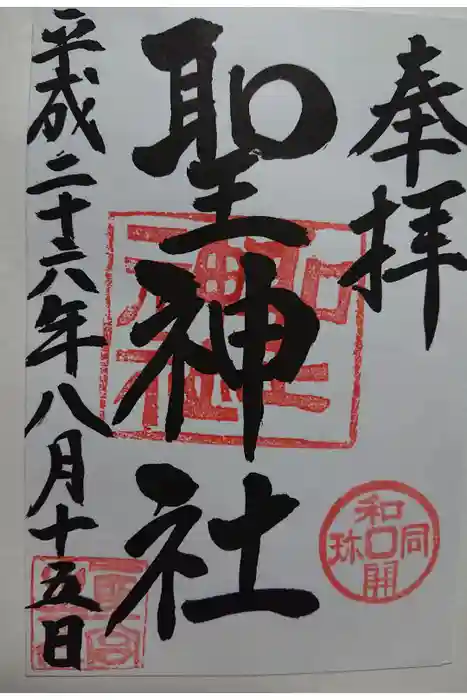 奉拝
聖神社
平成二十六年八月十五日
聖神社
和同開珎